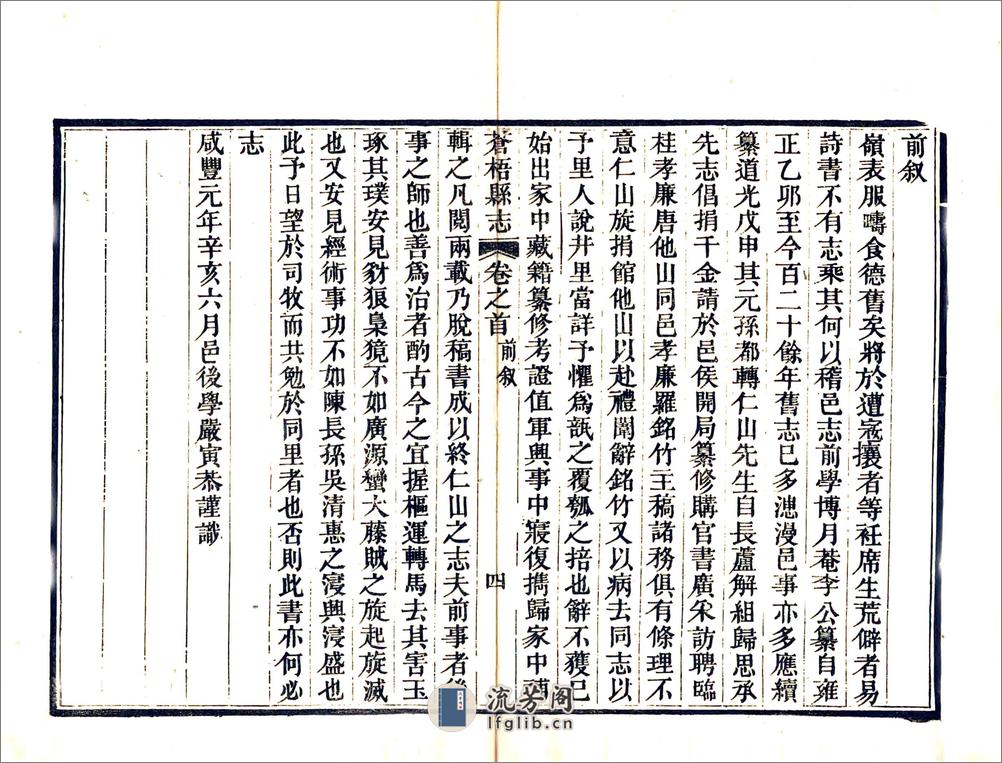 前叙
嶺表服疇食德舊矣將於遭寇攘者等衽席生荒僻者易
詩書不有志乘其何以稽邑志前學博月菴李公纂自雍
正乙邜至今百二十餘年舊志已多漶漫邑事亦多應續
纂道光戊申其元孫都轉仁山先生自長蘆解組歸思承
先志倡捐千金請於邑侯開局纂修購官書廣采訪聘臨
桂孝廉唐他山同邑孝廉羅銘竹主稿諸務俱有條理不
意仁山旋捐館他山以赴禮闈辭銘竹又以病去同志以
予里人說井里當詳予懼為瓿之覆瓠之掊也辭不獲已
始出家中藏籍纂修考證值軍興事中寢復擕歸家中
蒼梧縣志 卷之首 前叙 四
輯之凡閱兩載乃脫稿書成以終仁山之志夫前事者
事之師也善為治者酌古今之宜握樞運轉馬去其害玉
琢其璞安見豺狼梟獍不如廣源蠻大藤賊之旋起旋滅
也又安見經術事功不如陳長孫吳清惠之寖興寖盛也
此予日望於司牧而共勉於同里者也否則此書亦何必
志
咸豐元年辛亥六月邑後學嚴寅恭謹識
流芳阁
lfglib.cn